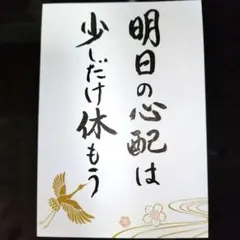 明日の心配は
少しだけ休もう